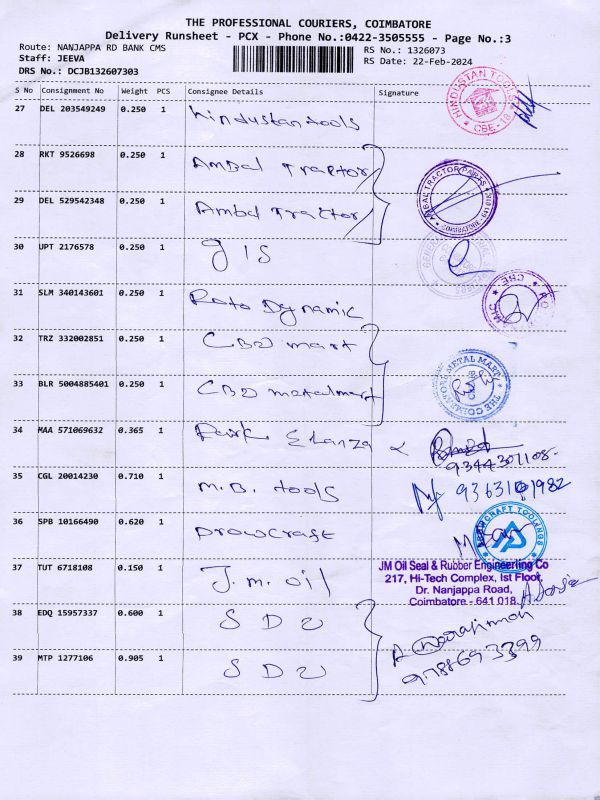 THE PROFESSIONAL COURIERS, COIMBATORE
Delivery Runsheet - PCX - Phone No.:0422-3505555 - Page No.:3
Route: NANJAPPA RD BANK CMS
RS No.: 1326073
Staff: JEEVA
RS Date: 22-Feb-2024
DRS No.: DCJB132607303
S No Consignment No Weight PCS Consignee Details Signature
27 DEL 203549249 0.250 1 hindustan tools
HINDUSTAN TOOLS * CBE-18 *
28 RKT 9526698 0.250 1 Ambal Tractor
29 DEL 529542348 0.250 1 Ambal Tractor
AMBAL TRACTOR PARTS
30 UPT 2176578 0.250 1 G I S
31 SLM 340143601 0.250 1 Roto Dynamic
CBE
32 TRZ 332002851 0.250 1 CBE mart
33 BLR 5004885401 0.250 1 CBE metalmart
THE COIMBATORE METAL MART
34 MAA 571069632 0.365 1
9344301108
35 CGL 20014230 0.710 1 M.B. tools
36 SPB 10166490 0.620 1 Drowcraft
37 TUT 6718108 0.150 1 J.M. oil
JM Oil Seal & Rubber Engineerling Co
217, Hi-Tech Complex, Ist Floor,
Dr. Nanjappa Road,
Coimbatore - 641 018.
38 EDQ 15957337 0.600 1 S D U
39 MTP 1277106 0.905 1 S D U